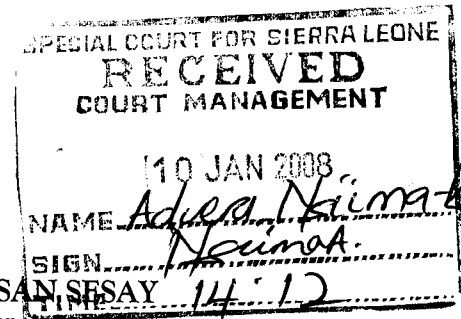 SPECIAL COURT FOR SIERRA LEONE
RECEIVED
COURT MANAGEMENT
10 JAN 2008
NAME
SIGN
SAN SESAY
TIME 14:12